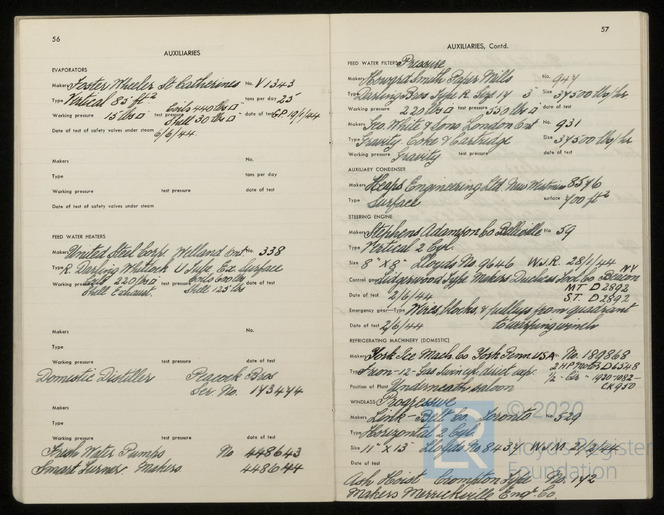 56
AUXILIARIES
EVAPORATORS
Makers Foster Wheeler St Catherines No. V1343
Type Vertical 85 ft² tons per day 25
Working pressure 15 lbs □" test pressure Coils 440 lbs □" Shell 30 lbs □" date of test GP 19/1/44
Date of test of safety valves under steam 6/6/44
Makers No.
Type tons per day
Working pressure test pressure date of test
Date of test of safety valves under steam
FEED WATER HEATERS
Makers United Steel Corp. Welland Ont No. 338
Type R. Darling Whitlock U Tube Ex. Surface
Working pressure Coils 220 lbs □" Shell Exhaust. test pressure Coils 600 lbs Shell 125 lbs date of test
Makers No.
Type
Working pressure test pressure date of test
Domestic Distiller Peacock Bros
Ser No. 173474
Makers
Type
Working pressure test pressure date of test
Fresh Water Pumps No 448643
Smart Turner Makers 448644
57
AUXILIARIES, Contd.
FEED WATER FILTERS Pressure
Makers Howard Smith Paper Mills No. 947
Type Darling Bros Type R Size 14 3" Size 37500 lbs/hr
Working pressure 220 lbs □" test pressure 550 lbs □" date of test
Makers Geo White & Sons London Ont No. 931
Type Gravity Coke & Cartridge Size 37500 lbs/hr
Working pressure Gravity test pressure date of test
AUXILIARY CONDENSER
Makers Heaps Engineering Ltd New Westmin 8576
Type Surface surface 700 ft²
STEERING ENGINE
Makers Stephens Adamson Co Belleville No. 59
Type Vertical 2 Cyl.
Size 8" x 8" Lloyds No 9646 W.J.R. 28/1/44
Control gear Edgewood Type Makers Duchess Tool Co Beacon NY
MT D2892
Date of test 2/6/44 ST. D2892
Emergency gear—Type Wires, blocks, & pulleys from quadrant
Date of test 2/6/44 to warping winch
REFRIGERATING MACHINERY (DOMESTIC)
Makers York Ice Mach. Co York Penn USA No. 189868
Type Freon-12-Gas 2HP Motor D6548
Position of Plant Underneath saloon
CK950
WINDLASS Progressive
Makers Link-Belt Co. Toronto No. 529
Type Horizontal 2 Cyl.
Size 11" x 13" Lloyds No 8437 W.J.M. 21/2/44
Ash Hoist Crompton Type No. 142
Makers Merrickville Engr. Co.
© 2020
LR
Lloyd's Register
Foundation